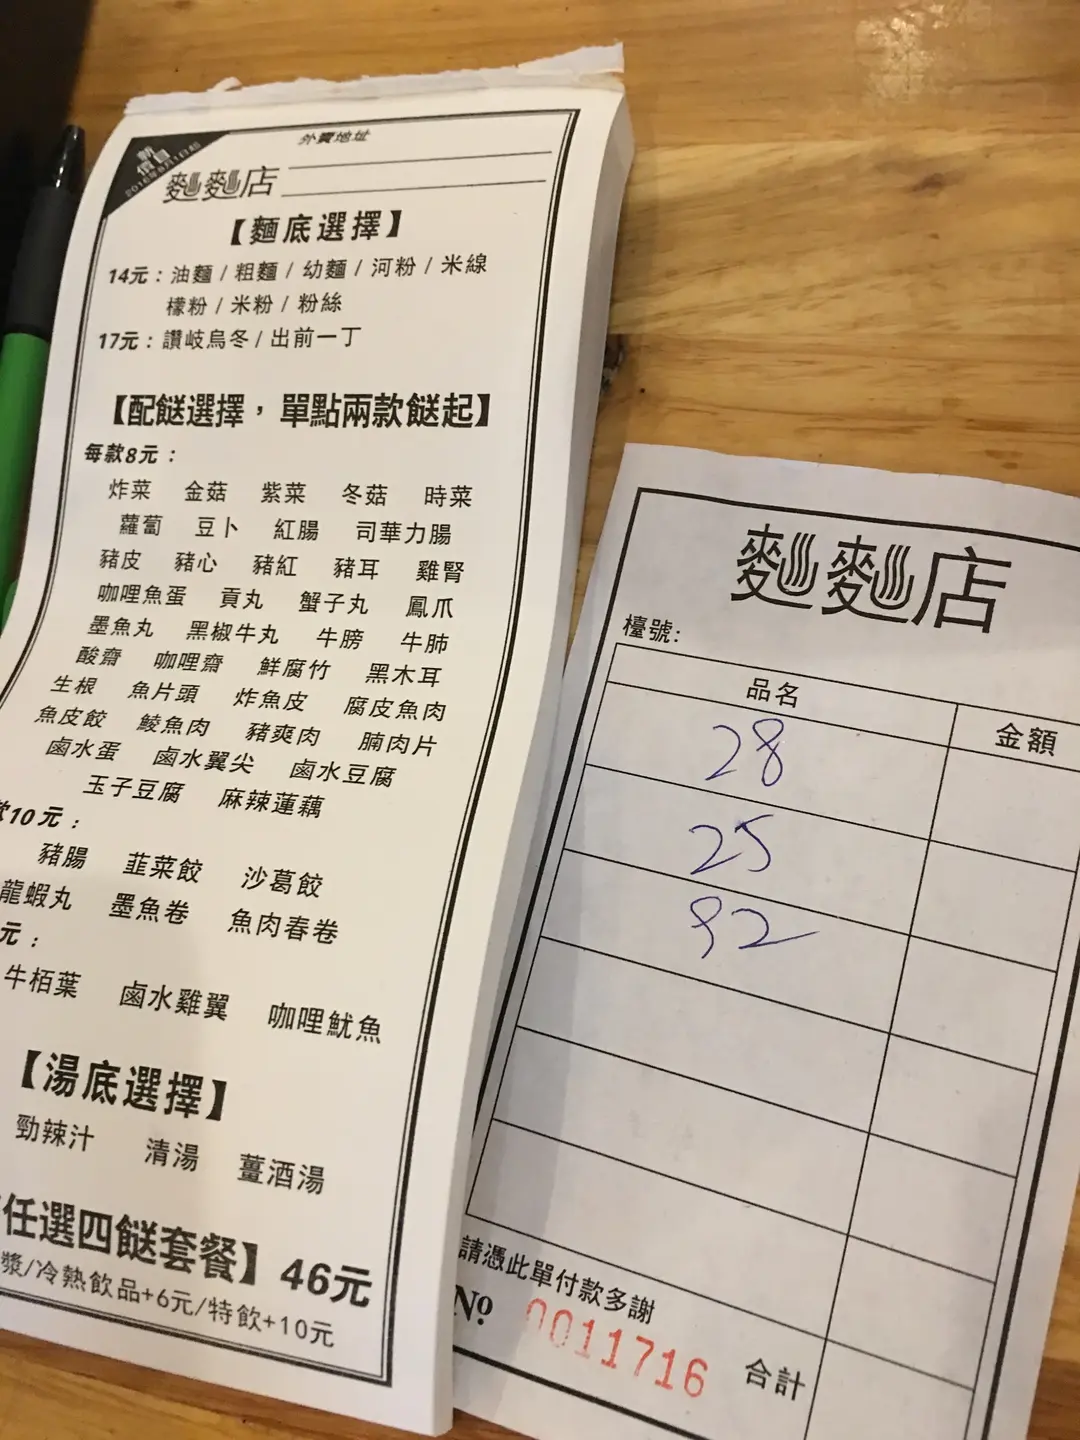 外賣地址
新
價目
麵麵店
【麵底選擇】
14元：油麵 / 粗麵 / 幼麵 / 河粉 / 米線
檬粉 / 米粉 / 粉絲
17元：讚岐烏冬 / 出前一丁
【配餸選擇，單點兩款餸起】
每款8元：
炸菜 金菇 紫菜 冬菇 時菜
蘿蔔 豆卜 紅腸 司華力腸
豬皮 豬心 豬紅 豬耳 雞腎
咖哩魚蛋 貢丸 蟹子丸 鳳爪
墨魚丸 黑椒牛丸 牛膀 牛肺
酸齋 咖哩齋 鮮腐竹 黑木耳
生根 魚片頭 炸魚皮 腐皮魚肉
魚皮餃 鯪魚肉 豬爽肉 腩肉片
鹵水蛋 鹵水翼尖 鹵水豆腐
玉子豆腐 麻辣蓮藕
款10元：
豬腸 韮菜餃 沙葛餃
龍蝦丸 墨魚卷 魚肉春卷
元：
牛栢葉 鹵水雞翼 咖哩魷魚
【湯底選擇】
勁辣汁 清湯 薑酒湯
任選四餸套餐】46元
漿/冷熱飲品+6元/特飲+10元
麵麵店
檯號:
品名 金額
28
25
92
請憑此單付款多謝
No 0011716 合計